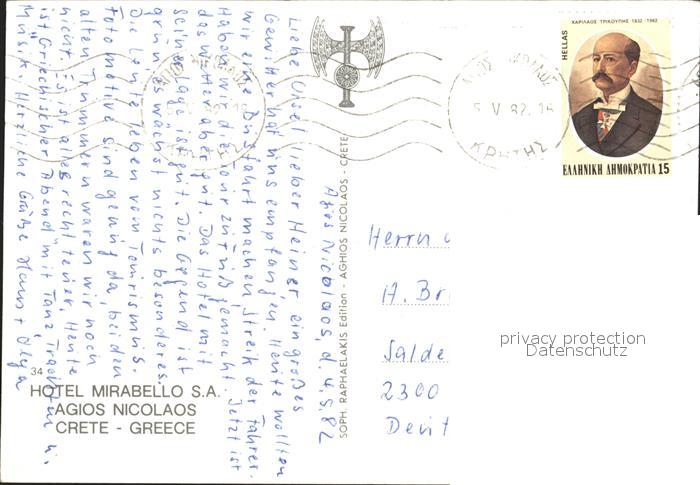 Agios Nicolaos, d. 4.5.82
Liebe Ursel, lieber Heiner, ein großes
Gewitter hat uns empfangen. Heute wollten
wir eine Busfahrt machen, Streik der Fahrer.
Haben wir die Tour zu Fuß gemacht. Jetzt ist
das Wetter aber gut. Das Hotel mit
seiner Lage ist gut. Die Gegend ist
grün, es wächst nichts besonderes.
Die Leute leben vom Tourismus.
Fotomotive sind genug da, bei den
alten Trümmern waren wir noch
nicht. Es ist aber recht teuer. Heute
ist "Griechischer Abend" mit Tanz, Trachten u.
Musik. Herzliche Grüße
34
HOTEL MIRABELLO S.A.
AGIOS NICOLAOS
CRETE - GREECE
SOPH. RAPHAELAKIS Edition - AGHIOS NICOLAOS - CRETE
5 V 82. 16
ΚΡΗΤΗΣ
ΧΑΡΙΛΑΟΣ ΤΡΙΚΟΥΠΗΣ 1832-1982
HELLAS
ΕΛΛΗΝΙΚΗ ΔΗΜΟΚΡΑΤΙΑ 15
Herrn
A. Br
Salde
2300
privacy protection
Datenschutz